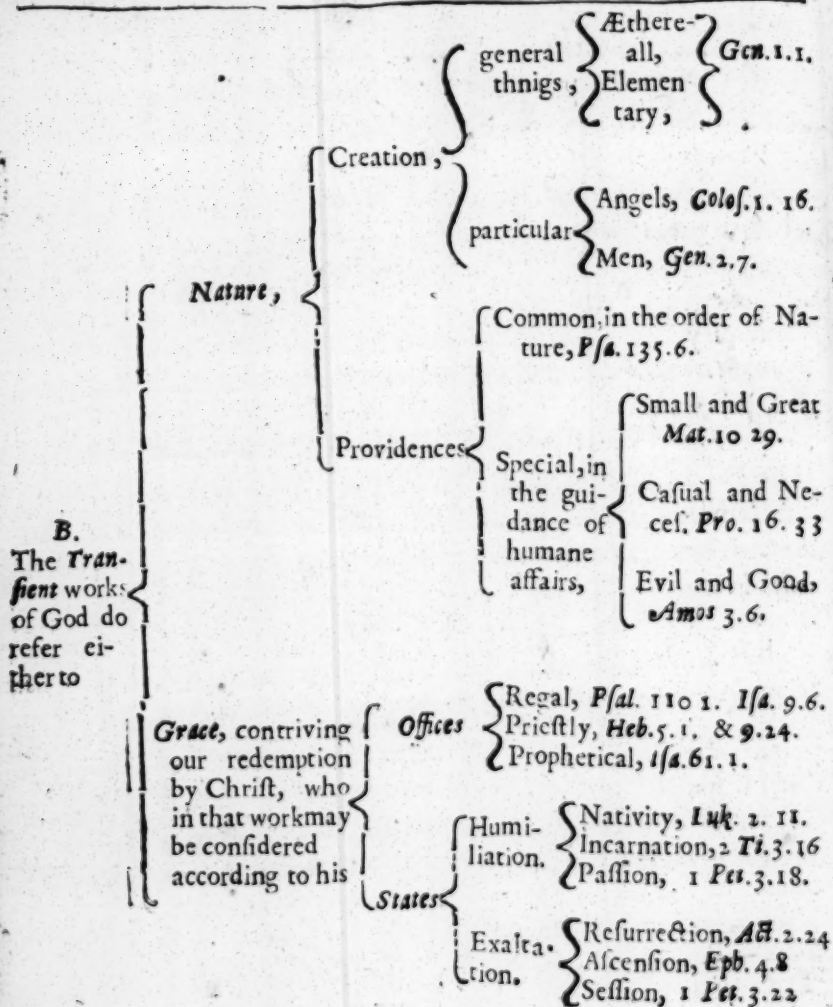 B.
The Tran-
ſient works
of God do
refer ei-
ther to
Nature,
Creation,
general
thnigs,
Æthere-
all,
Elemen
tary,
Gen.1.1.
particular
Angels, Coloſ.1. 16.
Men, Gen.2.7.
Providences
Common,in the order of Na-
ture, Pſa.135.6.
Special,in
the gui-
dance of
humane
affairs,
Small and Great
Mat.10 29.
Caſual and Ne-
ceſ. Pro. 16. 33
Evil and Good,
Amos 3.6.
Grace, contriving
our redemption
by Chriſt, who
in that workmay
be conſidered
according to his
Offices
Regal, Pſal. 110 1. Iſa. 9.6.
Prieſtly, Heb.5.1. & 9.24.
Propherical, Iſa.61.1.
States
Humi-
liation.
Nativity, Luk. 2. 11.
Incarnation,2 Ti.3.16
Paſſion, 1 Pet.3.18.
Exalta-
tion.
Reſurrection, Act.2.24
Aſcenſion, Eph.4.8
Seſſion, 1 Pet.3.22